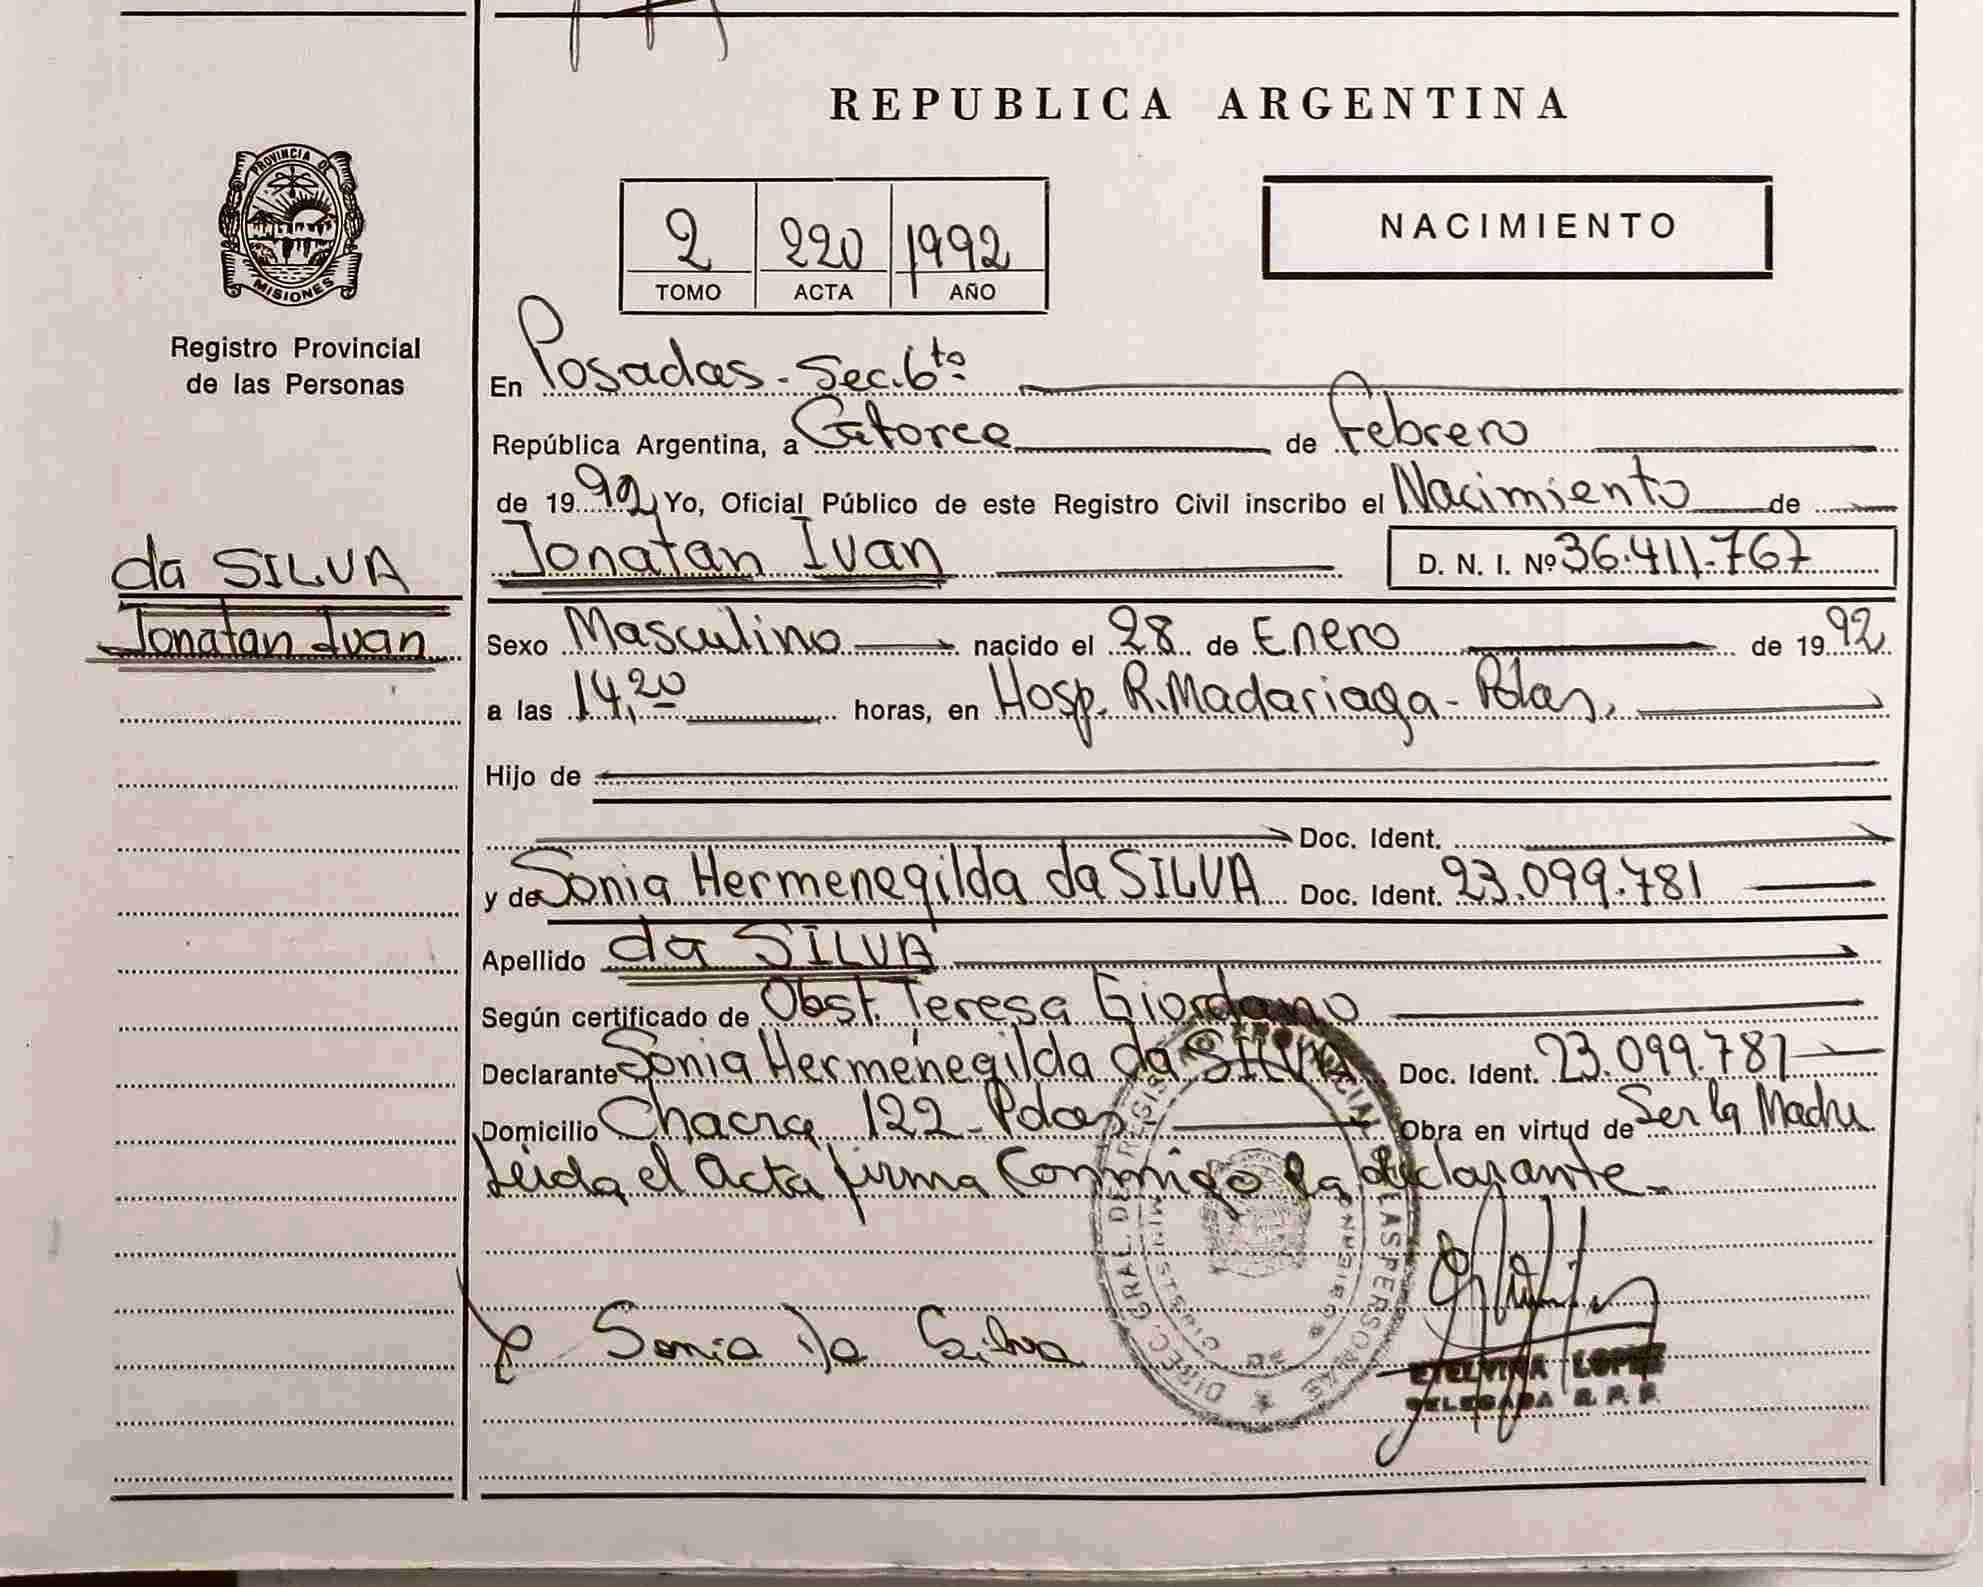 REPUBLICA ARGENTINA
PROVINCIA DE
MISIONES
Registro Provincial
de las Personas
2 220 1992
TOMO ACTA AÑO
NACIMIENTO
En Posadas - Sec. 6ta
República Argentina, a Catorce de Febrero
de 1992 Yo, Oficial Público de este Registro Civil inscribo el Nacimiento de
da SILVA
Jonatan Ivan
Jonatan Ivan D. N. I. Nº 36.411.767
Sexo Masculino nacido el 28 de Enero de 1992
a las 14,20 horas, en Hosp. R. Madariaga - Pdas.
Hijo de
Doc. Ident.
y de Sonia Hermenegilda da SILVA Doc. Ident. 23.099.781
Apellido da SILVA
Según certificado de Obst. Teresa Giordano
Declarante Sonia Hermenegilda da SILVA Doc. Ident. 23.099.781
Domicilio Chacra 122 - Pdas. Obra en virtud de Ser la Madre
Leida el Acta firma Conmigo la declarante.
Sonia Da Silva
DIREC. GRAL. DE REGISTRO PROVINCIAL DE LAS PERSONAS
ETELVINA LOPEZ
DELEGADA R. P. P.